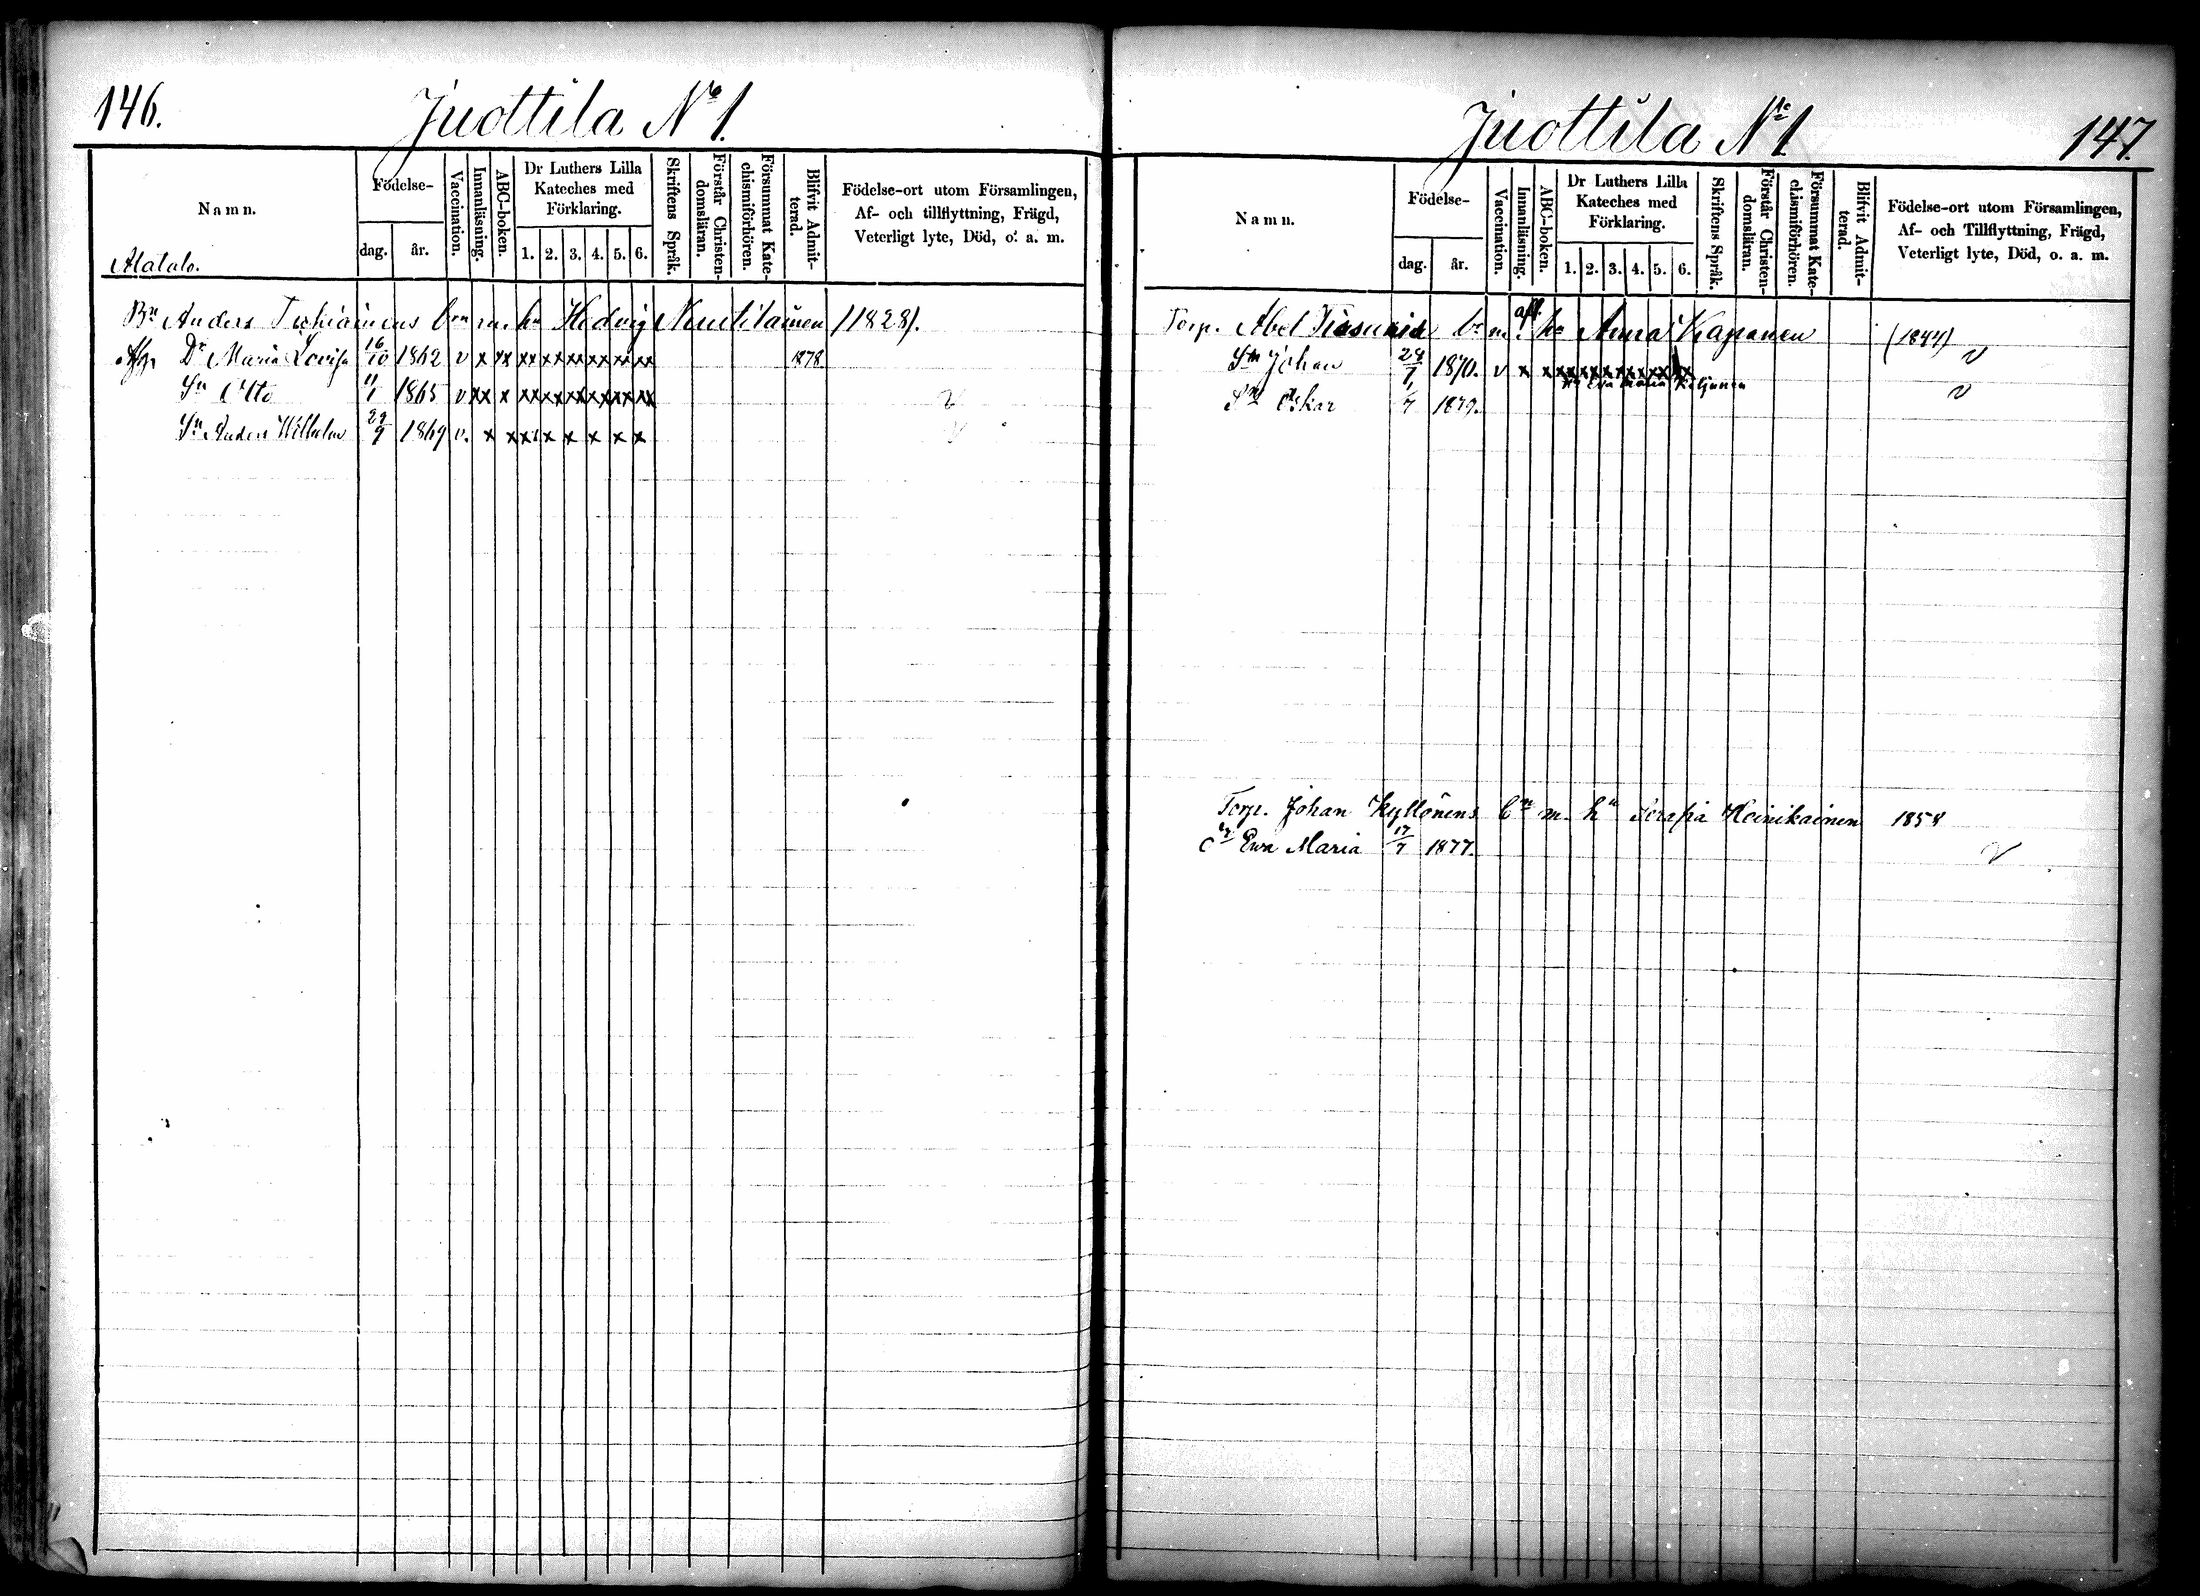 146.
Juottila No 1.
Namn.
Födelse-
dag.
år.
Vaccination.
Innanläsning.
ABC-boken.
Dr Luthers Lilla
Kateches med
Förklaring.
1. 2. 3. 4. 5. 6.
Skriftens Språk.
Förstår Christen-
domsläran.
Försummat Kate-
chismiförhören.
Blifvit Admit-
terad.
Födelse-ort utom Församlingen,
Af- och tillflyttning, Frägd,
Veterligt lyte, Död, o. a. m.
Alatalo.
Bn Anders bn m. hn Hedvig (1828).
Dr Maria Lovisa 16/10 1862 v x xx xx xx xx xx xx xx 1878
Sn Otto 11/1 1865 v xx x xx xx xx xx xx xx v
Sn Anders Wilhelm 29/9 1869 v. x xx x x x x x x v
Juottila No 1
147.
Namn.
Födelse-
dag.
år.
Vaccination.
Innanläsning.
ABC-boken.
Dr Luthers Lilla
Kateches med
Förklaring.
1. 2. 3. 4. 5. 6.
Skriftens Språk.
Förstår Christen-
domsläran.
Försummat Kate-
chismiförhören.
Blifvit Admit-
terad.
Födelse-ort utom Församlingen,
Af- och Tillflyttning, Frägd,
Veterligt lyte, Död, o. a. m.
Torp. Abel bn m. afl. hn Anna Kaponen (1844)
Sn Johan 24/1 1870. v x x xx xx xx xx xx xx v
hn Eva Maria
Sn Oskar 1/7 1879. v
Torp. Johan Kyllönens bn m. hn Serafia Heinikainen 1858
Ewa Maria 17/7 1877. v